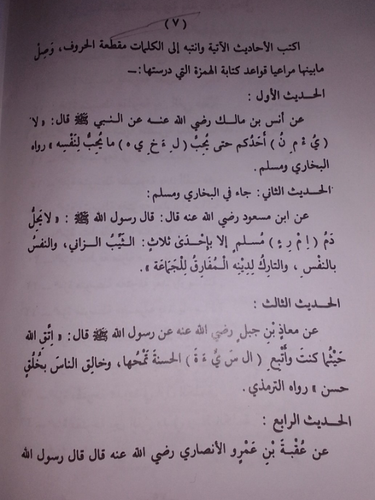 (٧)
اكتب الأحاديث الآتية وانتبه إلى الكلمات مقطعة الحروف، وَصِلْ
مابينها مراعيا قواعد كتابة الهمزة التي درستها:ـ
الحديث الأول :
عن أنس بن مالك رضي الله عنه عن النبي ﷺ قال: « لا
( يُ ؤْ مِ نُ ) أَحَدُكم حتى يُحِبَّ ( لِ أَ خِ ي هِ ) ما يُحِبُّ لِنَفْسِه » رواه
البخاري ومسلم.
الحديث الثاني: جاء في البخاري ومسلم:
عن ابن مسعود رضي الله عنه قال: قال رسول الله ﷺ : « لا يَحِلُّ
دَمُ ( ا مْ رِ ءٍ ) مُسلم إلا بإحْدَى ثلاثٍ: الثَّيِّبُ الزاني، والنفسُ
بالنفْسِ، والتاركُ لِدِيْنِه الْمُفَارِقُ لِلْجَمَاعَة » .
الحديث الثالث :
عن معاذِ بْنِ جبلٍ رضي الله عنه عن رسول الله ﷺ قال: « اتَّقِ الله
حَيْثُما كنتَ وأَتْبِعِ ( ال سَّ يِّ ءَ ةَ ) الحسنةَ تَمْحُها، وخالِقِ الناسَ بخُلُقٍ
حسن » رواه الترمذي.
الحديث الرابع :
عن عُقْبَةَ بْنِ عَمْرٍو الأنصاري رضي الله عنه قال قال رسول الله